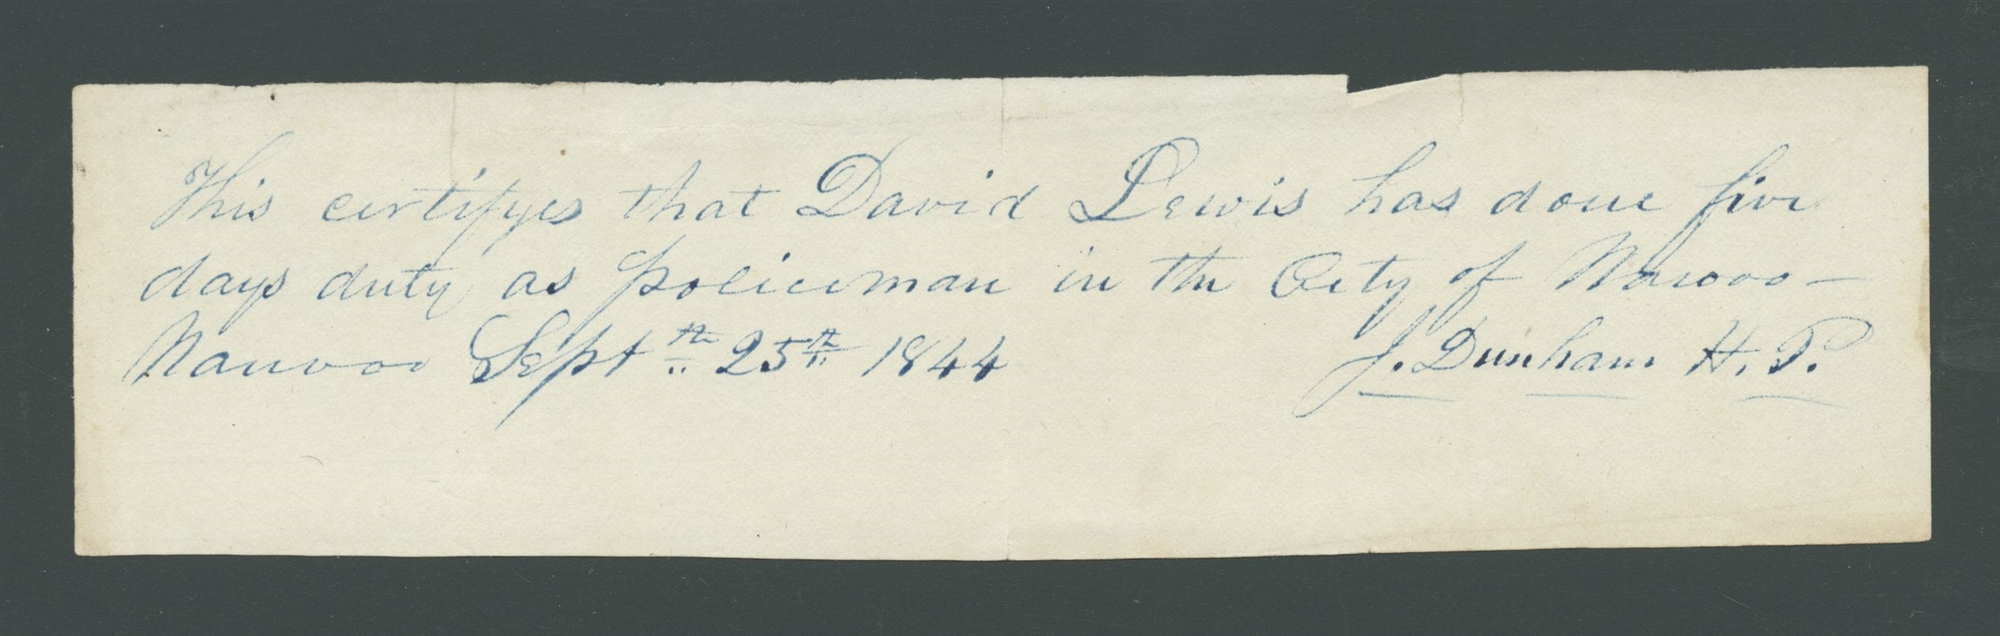 This certifyes that David Lewis has done five
days duty as policeman in the City of Nauvoo –
Nauvoo Sept th 25th 1844 J. Dunham H. P.